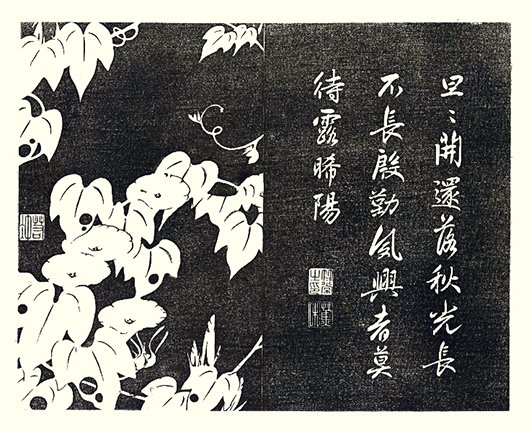 旦〻開還落秋光長
不長殷勤夙興者莫
待露晞陽